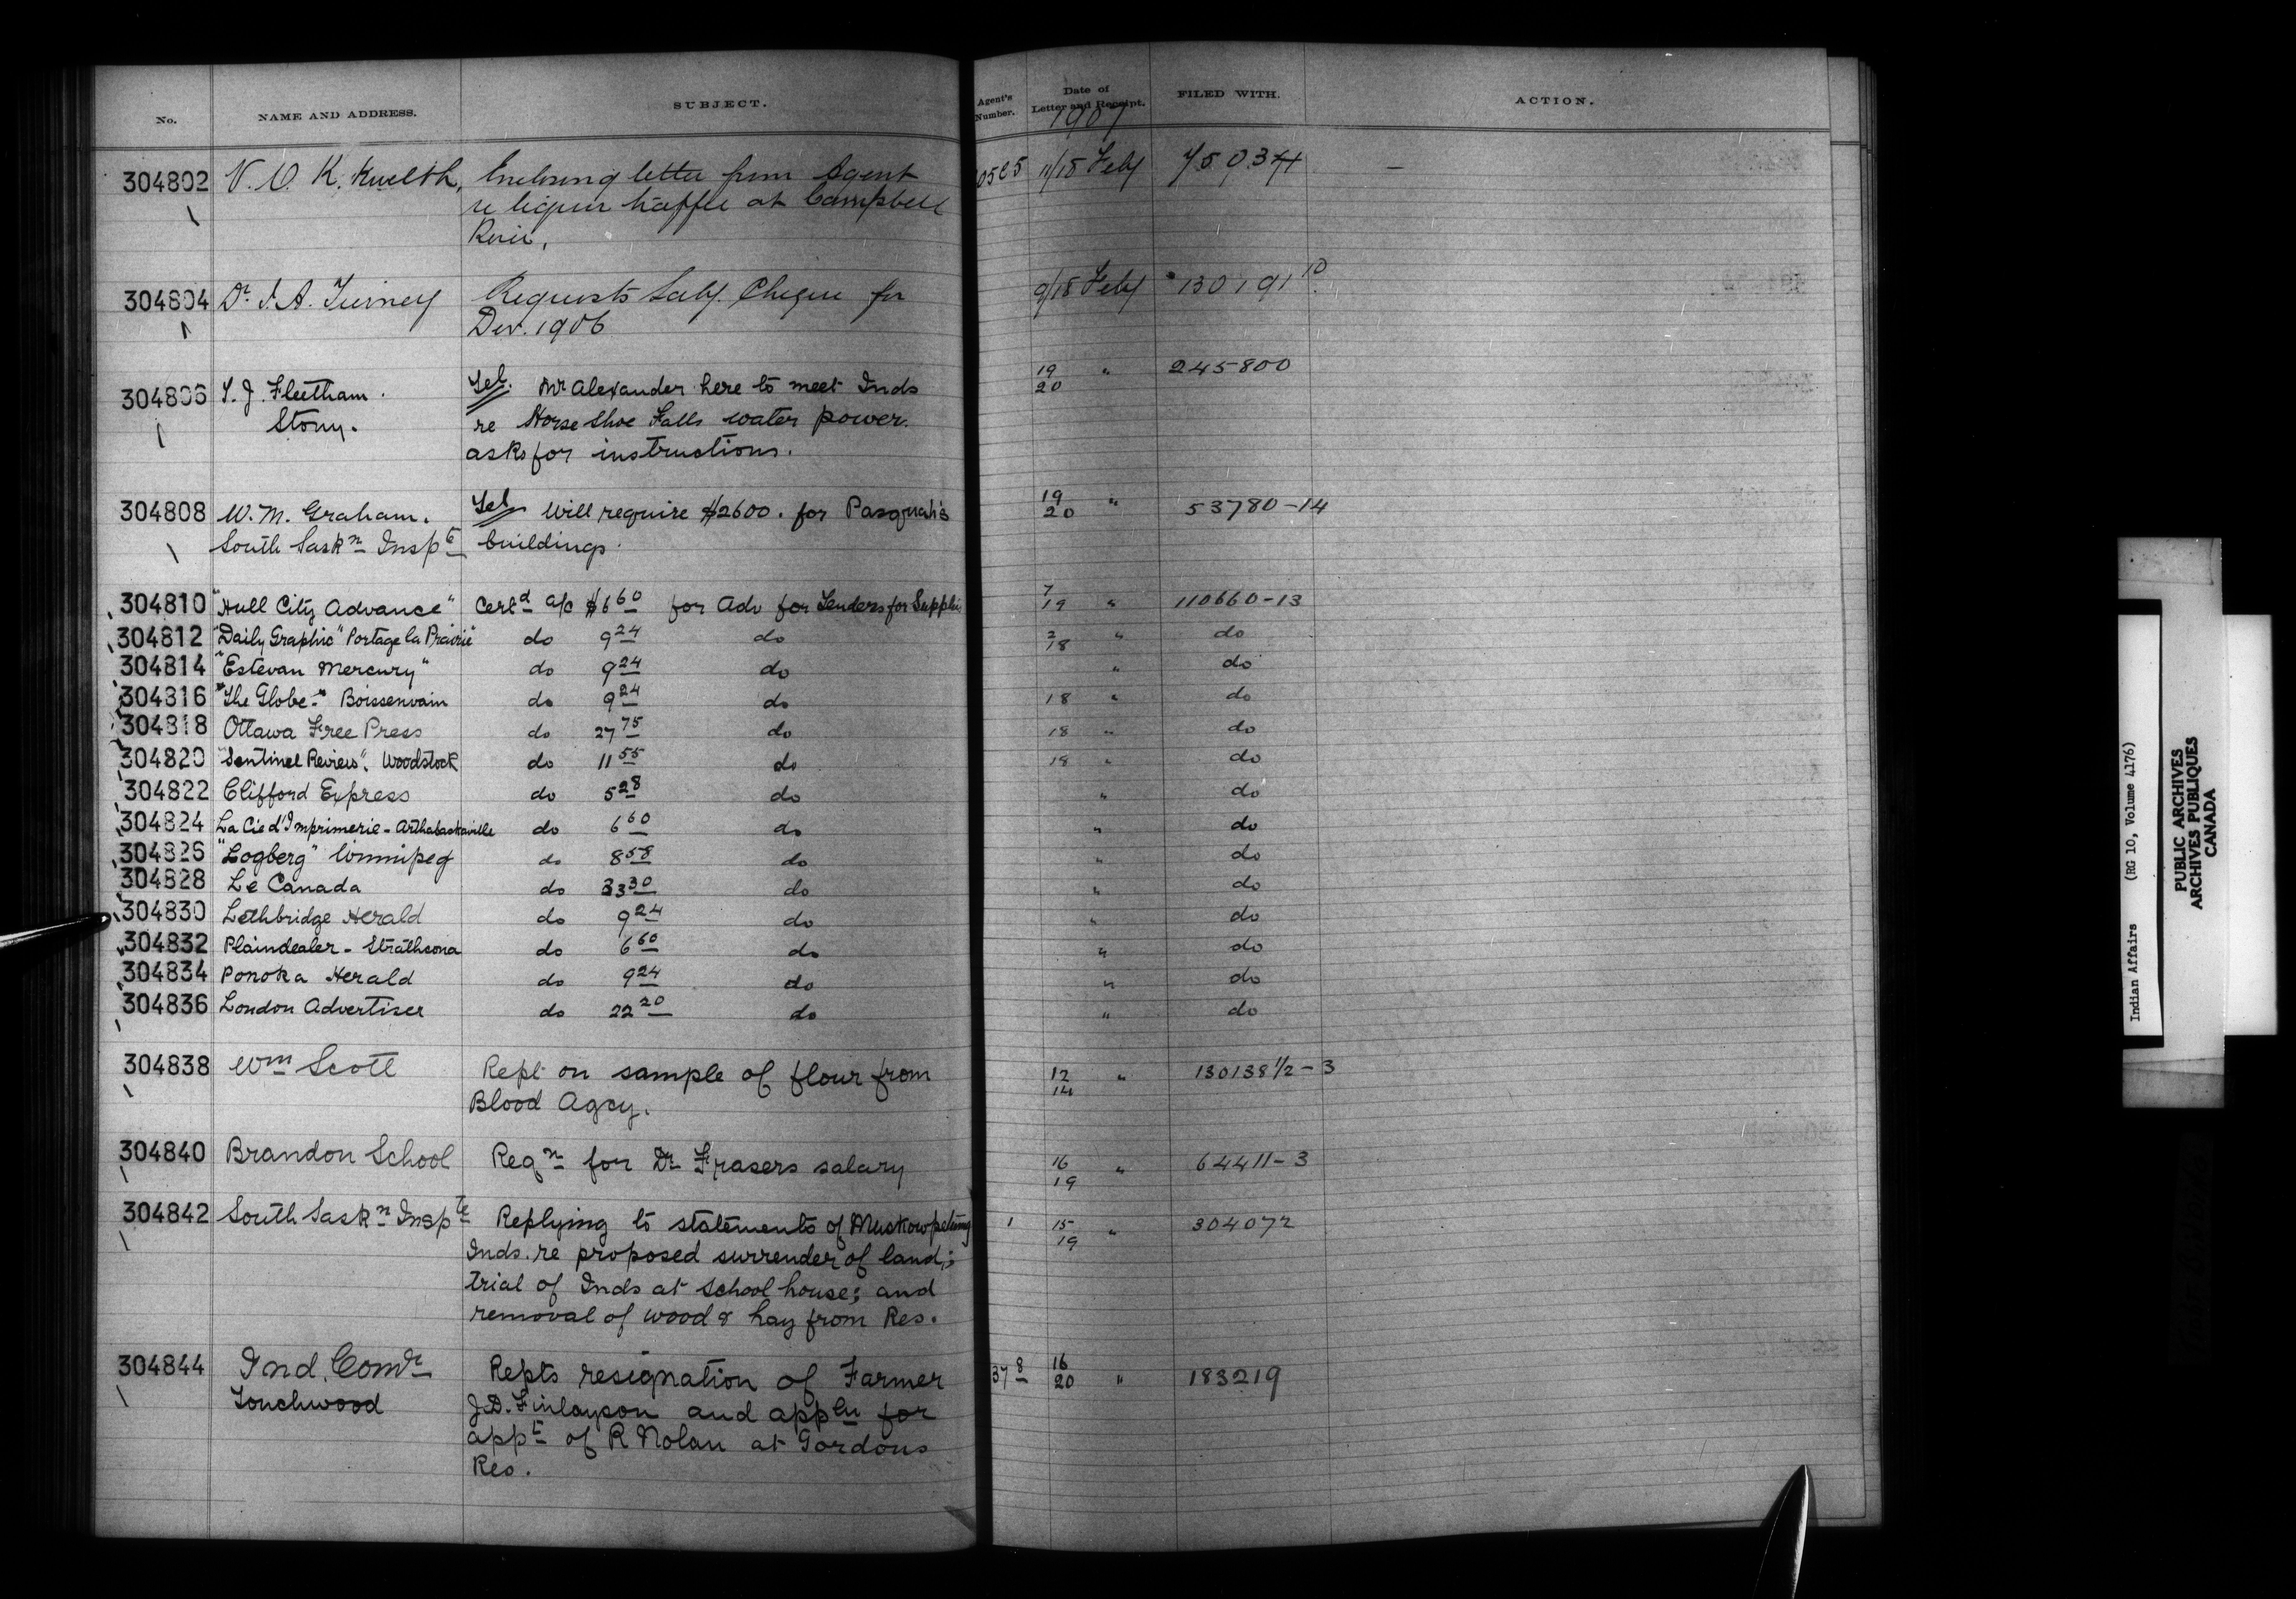 No. NAME AND ADDRESS. SUBJECT. Agent's Number. Date of Letter and Receipt. FILED WITH. ACTION.
1907
304802 Enclosing letter from Agent 11/18 Feby 75034 –
re liquor traffic at Campbell
River,
304804 Dr. J. A. Tierney Requests Saly. Cheque for 9/18 Feby 130191 10
Dec. 1906
304806 T. J. Fleetham. Tel. Mr Alexander here to meet Inds 19/20 " 245800
Stony. re Horse Shoe Falls water power.
asks for instructions.
304808 W. M. Graham. Tel. Will require $2600. for Pasquah's 19/20 " 53780-14
South Saskn Inspte buildings.
304810 "Hull City Advance" Certd a/c $6 60 for Adv for Tenders for Supplies 7/19 " 110660-13
304812 "Daily Graphic" Portage la Prairie do 9 24 do 2/18 " do
304814 "Estevan Mercury" do 9 24 do " do
304816 "The Globe" Boissenvain do 9 24 do 18 " do
304818 Ottawa Free Press do 27 75 do 18 " do
304820 "Sentinel Review". Woodstock do 11 55 do 18 " do
304822 Clifford Express do 5 28 do " do
304824 La Cie d'Imprimerie - Arthabaskaville do 6 60 do " do
304826 "Logberg" Winnipeg do 8 58 do " do
304828 Le Canada do 33 30 do " do
304830 Lethbridge Herald do 9 24 do " do
304832 Plaindealer - Strathcona do 6 60 do " do
304834 Ponoka Herald do 9 24 do " do
304836 London Advertiser do 22 20 do " do
304838 Wm Scott Rept on sample of flour from 12/14 " 130138½-3
Blood Agcy.
304840 Brandon School Reqn for Dr Frasers salary 16/19 " 64411-3
304842 South Saskn Inspte Replying to statements of Muskowpetung 1 15/19 " 304072
Inds. re proposed surrender of land;
trial of Inds at School house; and
removal of wood & hay from Res.
304844 Ind. Comr Repts resignation of Farmer 37 8 16/20 " 183219
Touchwood J.D. Finlayson and appln for
appt of R Nolan at Gordons
Res.
Indian Affairs (RG 10, Volume 4176)
PUBLIC ARCHIVES
ARCHIVES PUBLIQUES
CANADA